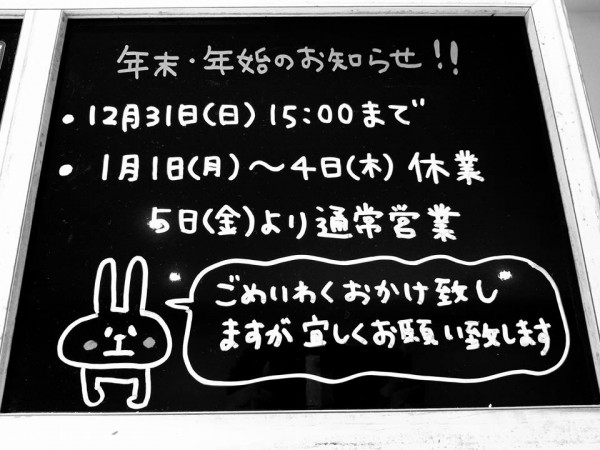 年末・年始のお知らせ!!
・12月31日(日) 15:00まで
・1月1日(月)〜4日(木) 休業
5日(金)より通常営業
ごめいわくおかけ致し
ますが宜しくお願い致します